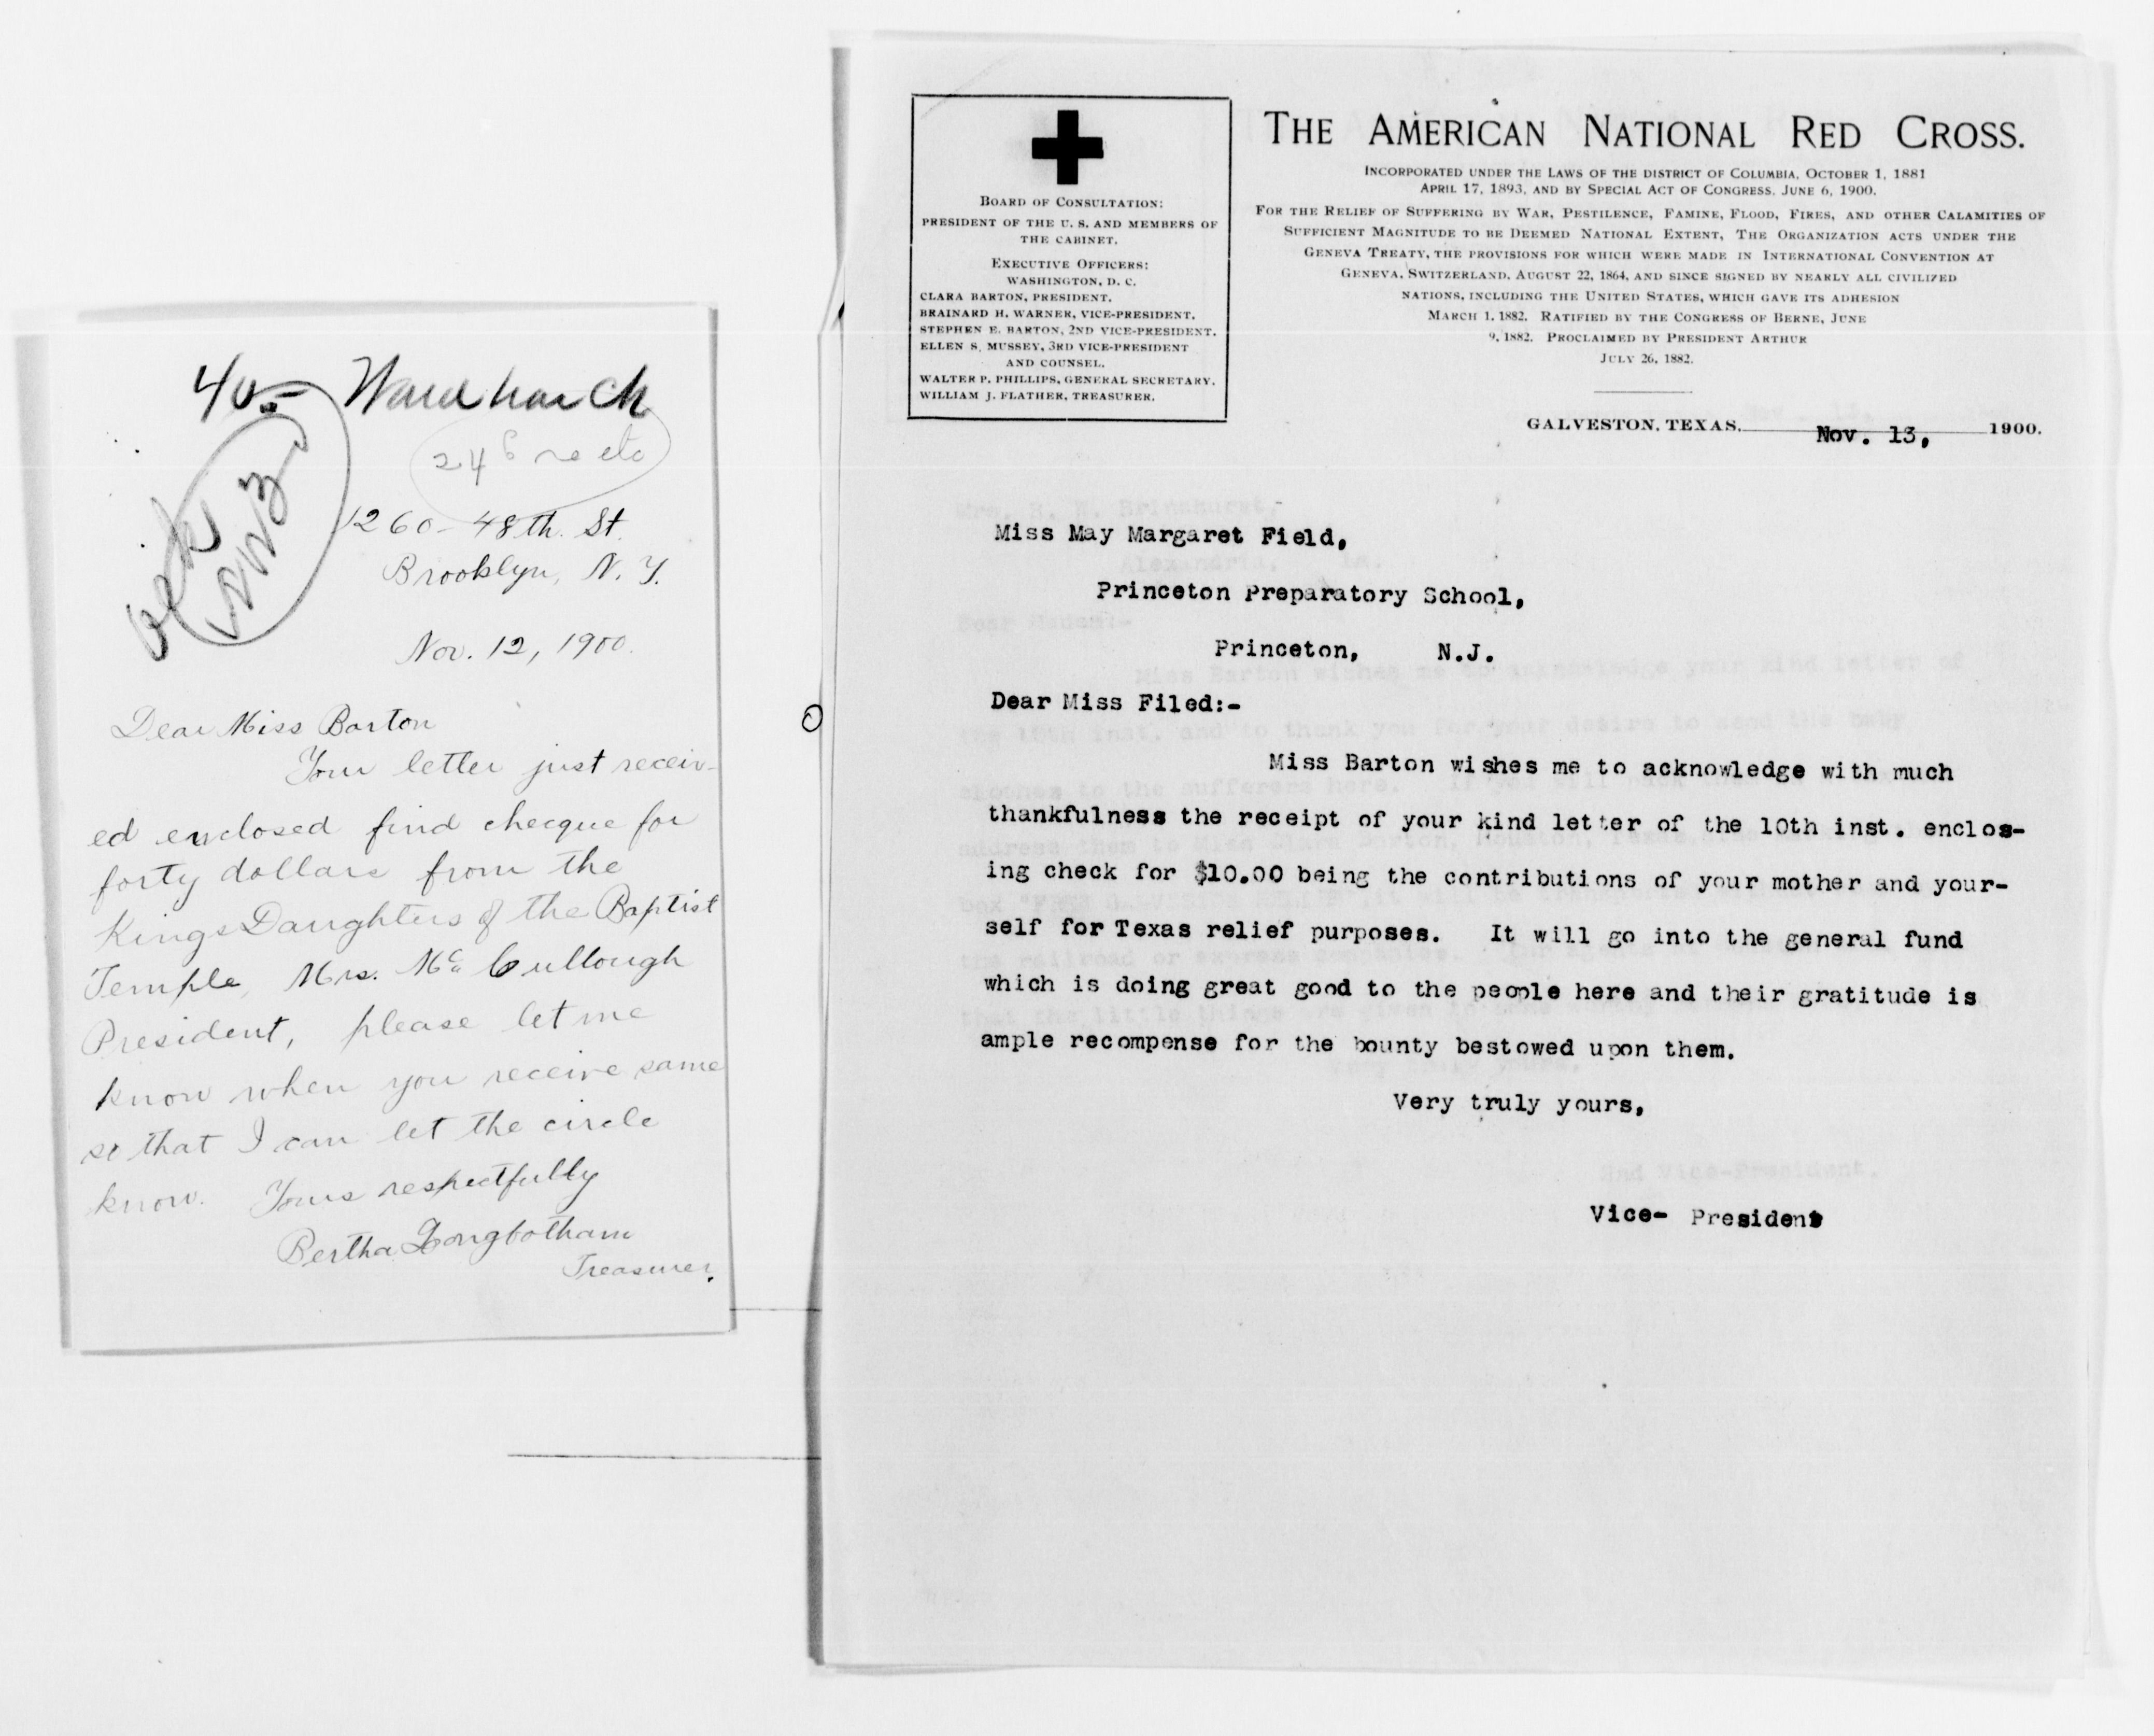 40.-
ack
1260- 48th. St.
Brooklyn, N. Y.
Nov. 12, 1900.
Dear Miss Barton
Your letter just receiv-
ed enclosed find checque for
forty dollars from the
Kings Daughters of the Baptist
Temple, Mrs. Mc Cullough
President, please let me
know when you receive same
so that I can let the circle
know. Yours respectfully
Bertha Longbotham
Treasurer.
THE AMERICAN NATIONAL RED CROSS.
INCORPORATED UNDER THE LAWS OF THE DISTRICT OF COLUMBIA, OCTOBER 1, 1881
APRIL 17, 1893, AND BY SPECIAL ACT OF CONGRESS, JUNE 6, 1900.
FOR THE RELIEF OF SUFFERING BY WAR, PESTILENCE, FAMINE, FLOOD, FIRES, AND OTHER CALAMITIES OF
SUFFICIENT MAGNITUDE TO BE DEEMED NATIONAL EXTENT, THE ORGANIZATION ACTS UNDER THE
GENEVA TREATY, THE PROVISIONS FOR WHICH WERE MADE IN INTERNATIONAL CONVENTION AT
GENEVA, SWITZERLAND, AUGUST 22, 1864, AND SINCE SIGNED BY NEARLY ALL CIVILIZED
NATIONS, INCLUDING THE UNITED STATES, WHICH GAVE ITS ADHESION
MARCH 1, 1882. RATIFIED BY THE CONGRESS OF BERNE, JUNE
9, 1882. PROCLAIMED BY PRESIDENT ARTHUR
JULY 26, 1882.
BOARD OF CONSULTATION:
PRESIDENT OF THE U. S. AND MEMBERS OF
THE CABINET.
EXECUTIVE OFFICERS:
WASHINGTON, D. C.
CLARA BARTON, PRESIDENT.
BRAINARD H. WARNER, VICE-PRESIDENT.
STEPHEN E. BARTON, 2ND VICE-PRESIDENT.
ELLEN S. MUSSEY, 3RD VICE-PRESIDENT
AND COUNSEL.
WALTER P. PHILLIPS, GENERAL SECRETARY.
WILLIAM J. FLATHER, TREASURER.
GALVESTON, TEXAS. Nov. 13, 1900.
Miss May Margaret Field,
Princeton Preparatory School,
Princeton, N.J.
Dear Miss Filed:-
Miss Barton wishes me to acknowledge with much
thankfulness the receipt of your kind letter of the 10th inst. enclos-
ing check for $10.00 being the contributions of your mother and your-
self for Texas relief purposes. It will go into the general fund
which is doing great good to the people here and their gratitude is
ample recompense for the bounty bestowed upon them.
Very truly yours,
Vice- President